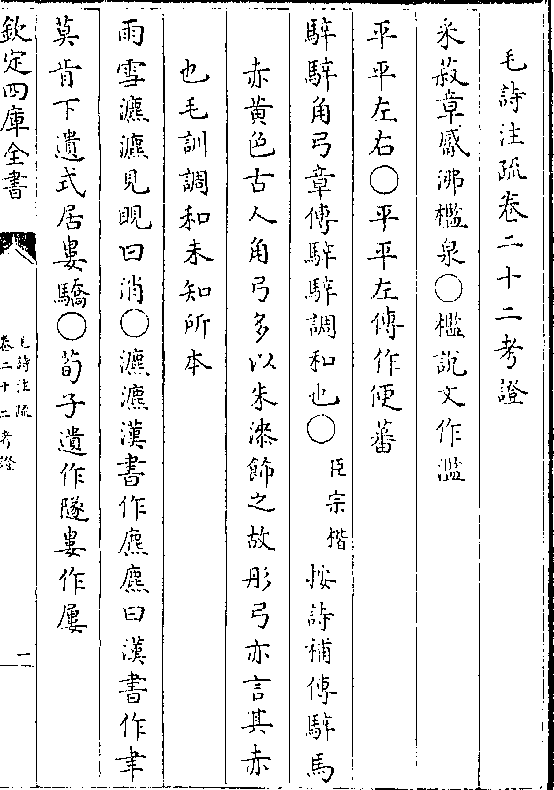 毛詩注疏卷二十二考證
采菽章觱沸檻泉○檻說文作濫
平平左右○平平左傳作便蕃
騂騂角弓章傳騂騂調和也○臣宗楷按詩補傳騂馬
赤黃色古人角弓多以朱漆飾之故彤弓亦言其赤
也毛訓調和未知所本
雨雪瀌瀌見晛曰消○瀌瀌漢書作麃麃曰漢書作聿
莫肯下遺式居婁驕○荀子遺作隧婁作屢
欽定四庫全書
毛詩注疏
卷二十二考證
一